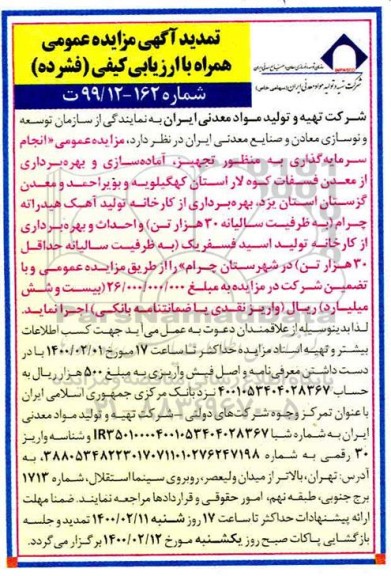 تمدید آگهی مزایده عمومی
همراه با ارزیابی کیفی (فشرده)
شماره ۱۶۲-۹۹/۱۲ ت
شرکت تهیه و تولید مواد معدنی ایران (سهامی خاص)
شرکت تهیه و تولید مواد معدنی ایران به نمایندگی از سازمان توسعه
و نوسازی معادن و صنایع معدنی ایران در نظر دارد، مزایده عمومی «انجام
سرمایه‌گذاری به منظور تجهیز، آماده‌سازی و بهره‌برداری
از معدن فسفات کوه لار استان کهگیلویه و بویراحمد و معدن
گزستان استان یزد، بهره‌برداری از کارخانه تولید آهک هیدراته
چرام (به ظرفیت سالیانه ۳۰ هزار تن) و احداث و بهره‌برداری
از کارخانه تولید اسید سففریک (به ظرفیت سالیانه حداقل
۳۰ هزار تن) در شهرستان چرام» را از طریق مزایده عمومی و با
تضمین شرکت در مزایده به مبلغ ۲۶/۰۰۰/۰۰۰/۰۰۰ (بیست و شش
میلیارد) ریال (واریز نقدی یا ضمانتنامه بانکی) اجرا نماید.
لذا بدینوسیله از علاقمندان دعوت به عمل می‌آید جهت کسب اطلاعات
بیشتر و تهیه اسناد مزایده حداکثر تا ساعت ۱۷ مورخ ۱۴۰۰/۰۲/۰۱ با در
دست داشتن معرفی‌نامه و اصل فیش واریزی به مبلغ ۵۰۰ هزار ریال به
حساب ۴۰۰۱۰۵۳۴۰۴۰۲۸۳۶۷ نزد بانک مرکزی جمهوری اسلامی ایران
با عنوان تمرکز وجوه شرکت‌های دولتی – شرکت تهیه و تولید مواد معدنی
ایران به شماره شبا IR۳۵۰۱۰۰۰۰۴۰۰۱۰۵۳۴۰۴۰۲۸۳۶۷ و شناسه واریز
۳۰ رقمی به شماره ۳۸۸۰۵۳۴۸۲۲۳۰۱۷۰۷۱۱۰۱۰۲۷۶۲۴۷۱۹۸، به
آدرس: تهران، بالاتر از میدان ولیعصر، روبروی سینما استقلال، شماره ۱۷۱۳
برج جنوبی، طبقه نهم، امور حقوقی و قراردادها مراجعه نمایند. ضمنا مهلت
ارائه پیشنهادات حداکثر تا ساعت ۱۷ روز شنبه ۱۴۰۰/۰۲/۱۱ تمدید و جلسه
بازگشایی پاکات صبح روز یکشنبه مورخ ۱۴۰۰/۰۲/۱۲ برگزار می‌گردد.